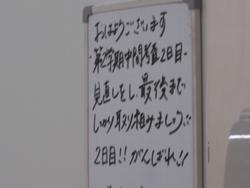 おはようございます
第2学期中間考査2日目。
見直しをし、最後まで
しっかり取り組みましょう!!
2日目!! がんばれ!!